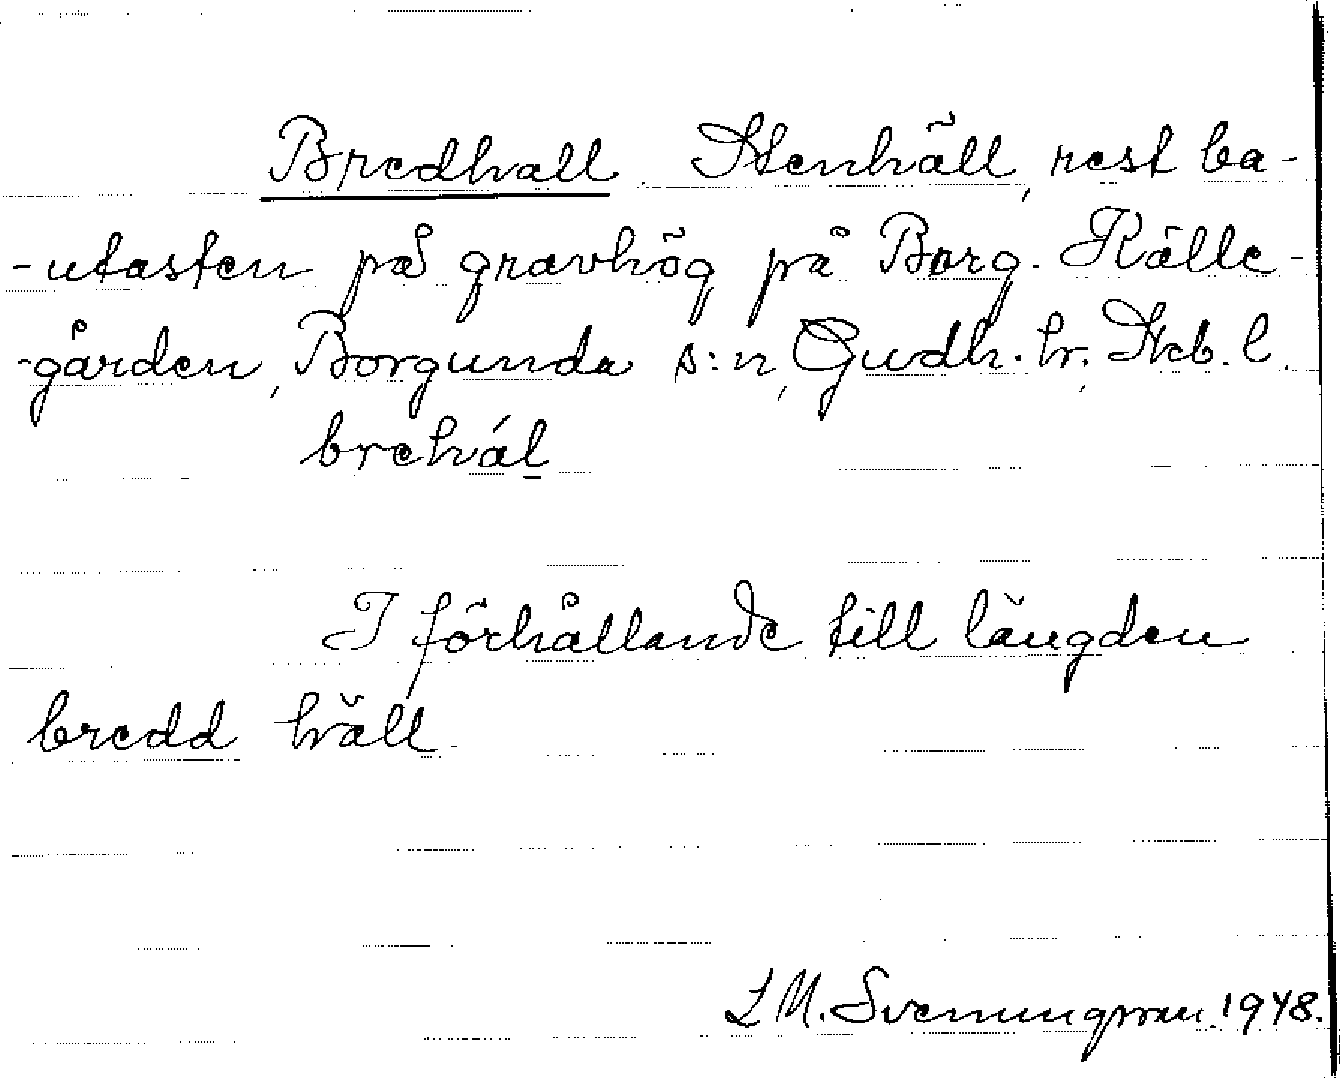 Bredhall. Stenhäll, rest ba-
-utasten på gravhög på Borg. Källe-
-gården, Borgunda s:n, Gudh. hr, Skb. l.
brehál
I förhållande till längden
bredd häll.
L M. Svenungsson. 1948.